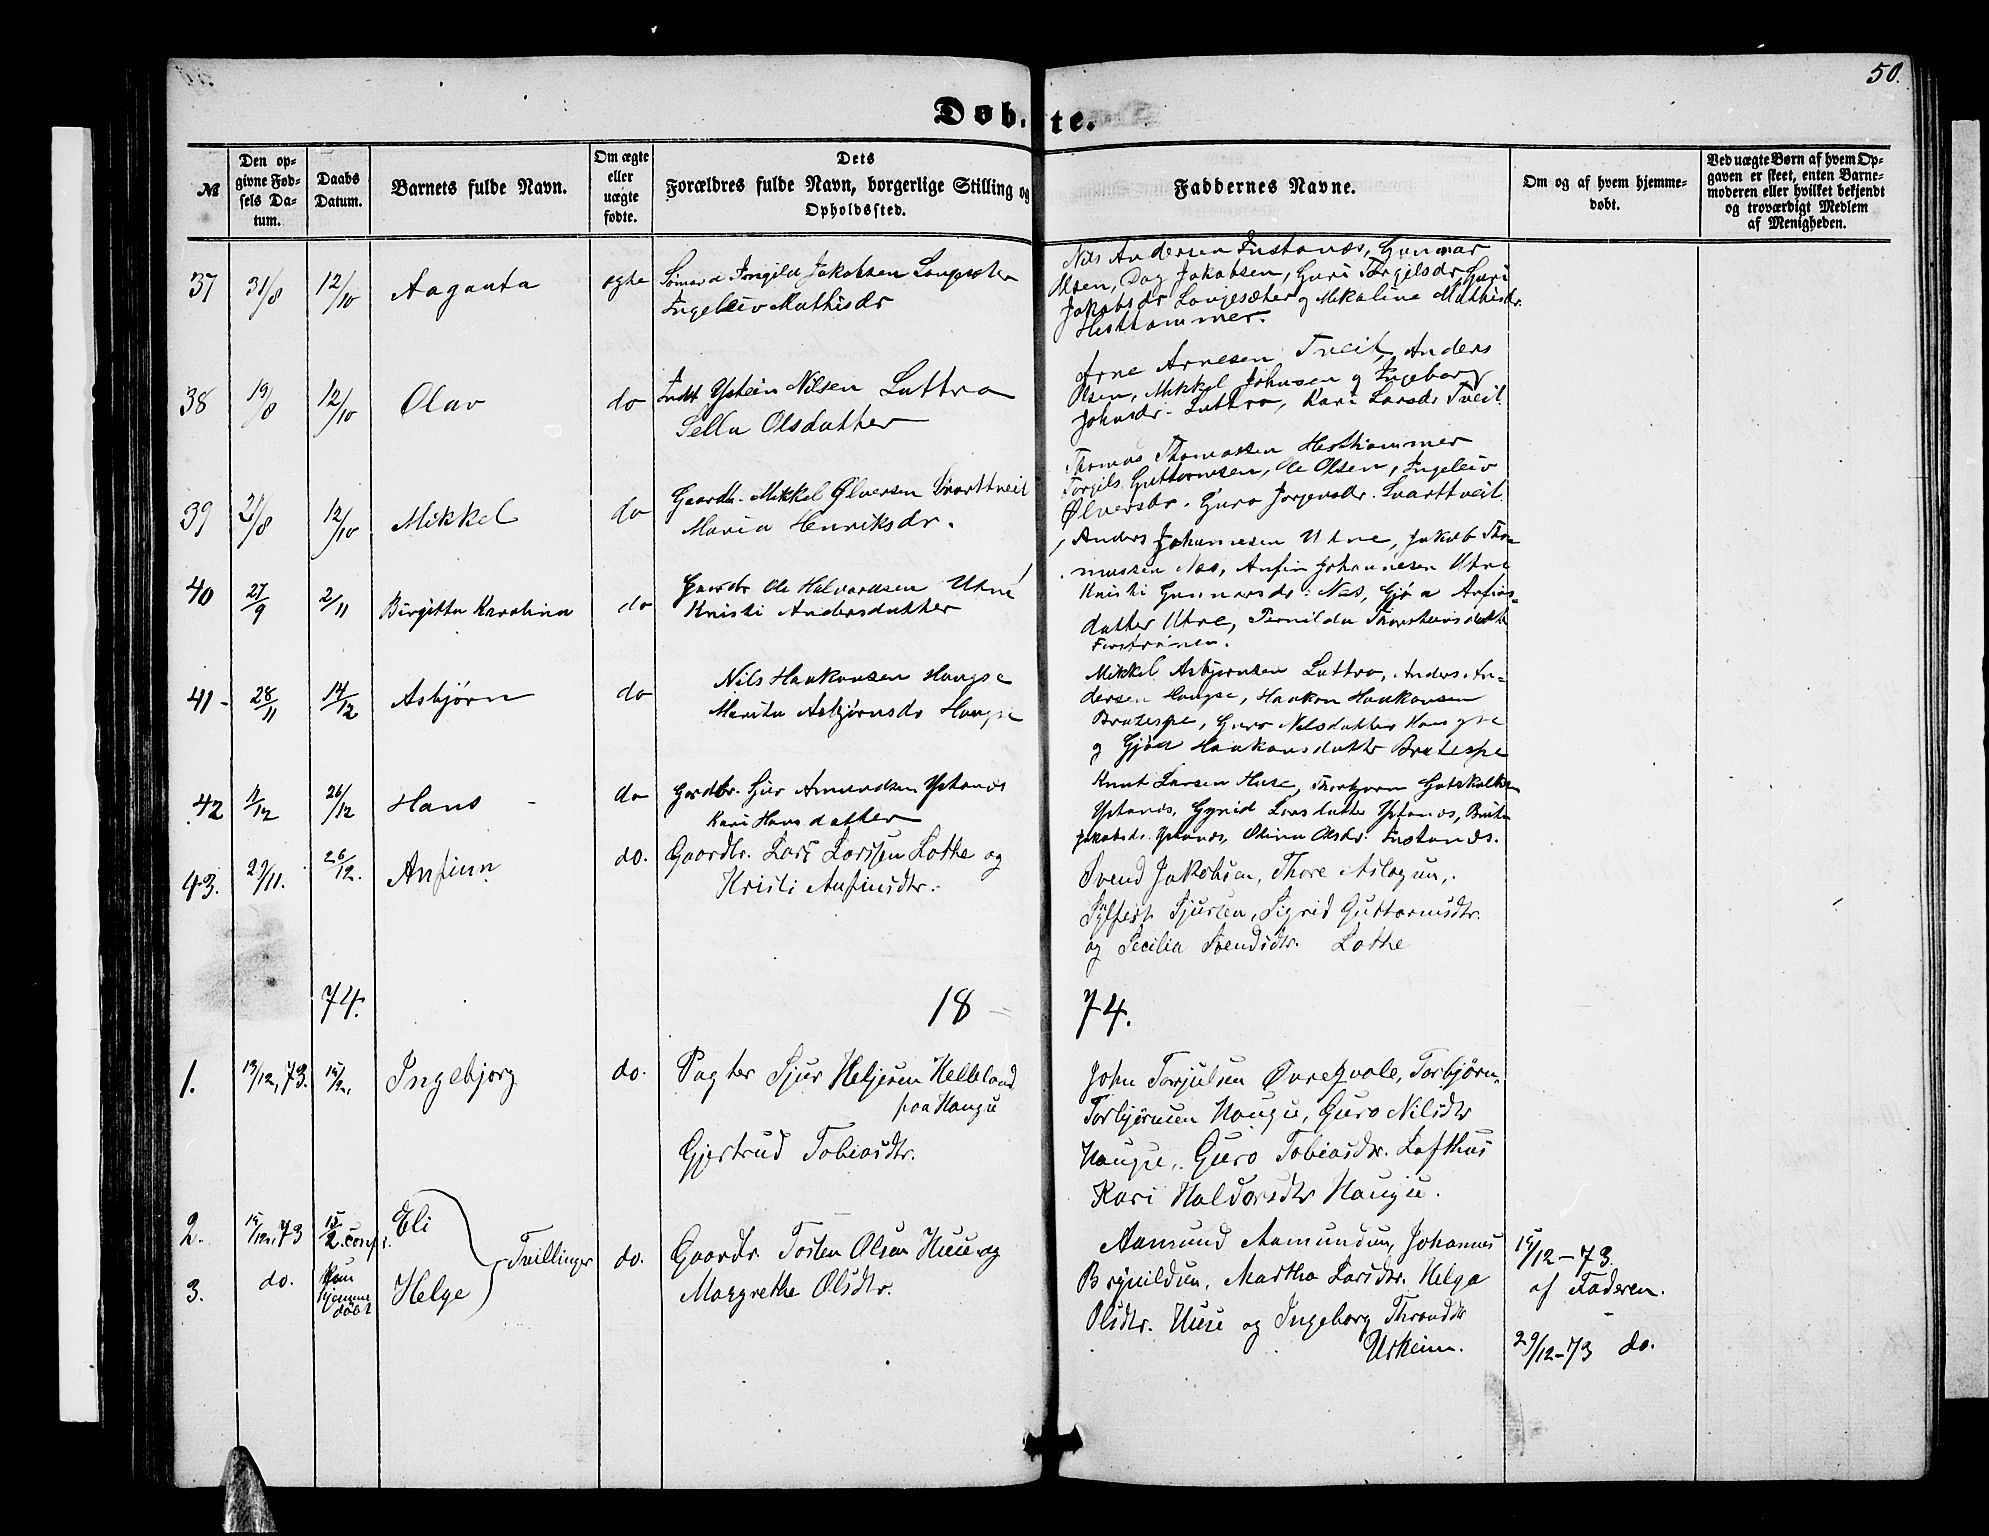 50.
Døb. te.
№
Den op-
givne Fød-
sels Da-
tum.
Daabs
Datum.
Barnets fulde Navn.
Om ægte
eller
uægte
fødte.
Dets
Forældres fulde Navn, borgerlige Stilling og
Opholdssted.
Faddernes Navne.
Om og af hvem hjemme-
døbt.
Ved uægte Børn af hvem Op-
gaven er skeet, enten Barne-
moderen eller hvilket bekjendt
og troværdigt Medlem
af Menigheden.
37 31/8 12/10 Aaganta egte
Jakobsen
Ingeleiv Mathisdr
Nils Andersen Instanæs, Gunnar
Olsen, Dag Jakobsen, Guri Torgilsdr, Guri
Jakobsdr Langesæter og Mikaline Mathisdr.
Hesthammer.
38 19/8 12/10 Olav do
Indt. Ystein Nilsen Luttro
Sella Olsdatter
Arne Arnesen Tveit, Anders
Olsen, Mikkel Johnsen og Ingeborg
Johnsdr. Luttro, Kari Larsdr Tveit.
39 /8 12/10 Mikkel do
Gaardbr. Mikkel Ølversen Svarttveit
Maria Henriksdr.
Thomas Thomassen Hesthammer
Torgils Guttormsen, Ole Olsen, Ingeleiv
Ølversdr. Guro Jorgensdr. Svarttveit
40 27/9 2/11 Birgitta Karolina do
Gaardbr Ole Halvardsen Utne
Kristi Andersdatter
Anders Johannesen Utne, Jakob Tho-
massen Næs, Anfin Johannesen Utne
Kristi Gunnarsdr. Næs, Gjøa Anfins-
datter Utne, Pernilda Thorsteinsdatter
41 - 28/11 14/12 Asbjørn do
Nils Haakonsen Hougse
Marita Asbjørnsdr Hougse
Mikkel Asbjørnsen Luttro, Anders An-
dersen Hougse, Haakon Haakonsen
Bratespe, Guro Nilsdatter Hougse
og Gjøa Haakonsdatter Bratespe
42 /12 26/12 Hans - do
Gardbr. Sjur Amundsen Ystanæs
Kari Hansdatter
Knut Larsen Huse, Thorbjørn Gotskalksen
Ystanæs, Gyrid Larsdatter Ystanæs, Brita
Jakobsdr. Ystanæs, Olina Olsdr. Instanæs.
43. 29/11. 26/12. Anfinn do.
Gaardbr. Lars Larssen Lothe og
Kristi Anfinsdtr.
Svend Jakobsen, Thore Aslagsen,
Sylfest Sjursen, Sigrid Guttormsdtr.
og Secilia Svendsdtr. Lothe
74. 18 74.
1. 13/12, 73. 15/2. Ingebjorg do.
Pagter Sjur Heljesen Helleland
paa Hougse
Gjertrud Tobiasdtr.
John Torjulsen Øvre Qvale, Torbjørn
Torbjørnsen Hougse, Guro Nilsdtr
Hougse, Guro Tobiasdtr. Lofthus
Kari Haldorsdtr Hougse.
2. 15/12, 73 15/2. conf. Eli
Tvillinger do.
3. do. Kun
hjemme
døbt Helge
Gaardbr. Tosten Olsen Huse og
Margrethe Olsdtr.
Aamund Aamundsen, Johannes
Brynildsen, Martha Larsdtr. Helga
Olsdtr. Huse og Ingeborg Throndsdtr
Urheim.
15/12 - 73.
af Faderen.
29/12 - 73 do.